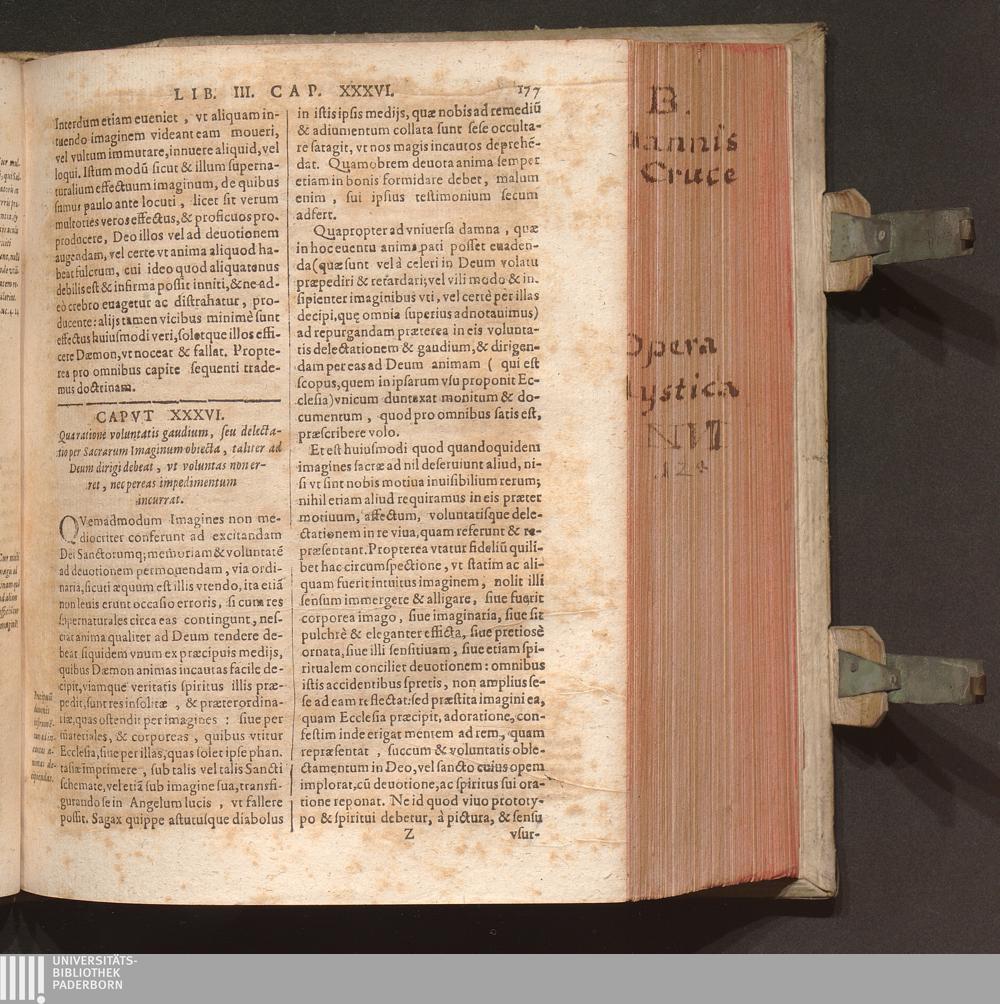 LIB. III. CAP. XXXVI. 177
Interdum etiam eueniet, vt aliquam in-
tuendo imaginem videant eam moueri,
vel vultum immutare, innuere aliquid, vel
loqui. Istum modũ sicut & illum superna-
turalium effectuum imaginum, de quibus
sumus paulo ante locuti, licet sit verum
multoties veros effectus, & proficuos pro-
producere, Deo illos vel ad deuotionem
augendam, vel certe vt anima aliquod ha-
beat fulcrum, cui ideo quod aliquatenus
debilis est & infirma possit inniti, & ne ad-
eò crebro euagetur ac distrahatur, pro-
ducente: alijs tamen vicibus minimè sunt
effectus huiusmodi veri, soletque illos effi-
cere Dæmon, vt noceat & fallat. Propte-
rea pro omnibus capite sequenti trade-
mus doctrinam.
CAPVT XXXVI.
Qua ratione voluntatis gaudium, seu delecta-
tio per Sacrarum Imaginum obiecta, taliter ad
Deum dirigi debeat, vt voluntas non er-
ret, nec per eas impedimentum
incurrat.
QVemadmodum Imagines non me-
diocriter conferunt ad excitandam
Dei Sanctorumq; memoriam & voluntatẽ
ad deuotionem permouendam, via ordi-
naria, sicuti æquum est illis vtendo, ita etiã
non leuis erunt occasio erroris, si cum res
supernaturales circa eas contingunt, nes-
ciat anima qualiter ad Deum tendere de-
beat siquidem vnum ex præcipuis medijs,
quibus Dæmon animas incautas facile de-
cipit, viamque veritatis spiritus illis præ-
pedit, sunt res insolitæ, & præterordina-
riæ, quas ostendit per imagines: siue per
materiales, & corporeas, quibus vtitur
Ecclesia, siue per illas, quas solet ipse phan-
tasiæ imprimere, sub talis vel talis Sancti
schemate, vel etiã sub imagine sua, transfi-
gurando se in Angelum lucis, vt fallere
possit. Sagax quippe astutusque diabolus
in istis ipsis medijs, quæ nobis ad remediũ
& adiumentum collata sunt sese occulta-
re satagit, vt nos magis incautos deprehẽ-
dat. Quamobrem deuota anima semper
etiam in bonis formidare debet, malum
enim, sui ipsius testimonium secum
adfert.
Quapropter ad vniuersa damna, quæ
in hoc euentu anima pati posset euaden-
da (quæ sunt vel à celeri in Deum volatu
præpediri & retardari; vel vili modo & in-
sipienter imaginibus vti, vel certè per illas
decipi, que omnia superius adnotauimus)
ad repurgandam præterea in eis volunta-
tis delectationem & gaudium, & dirigen-
dam per eas ad Deum animam (qui est
scopus, quem in ipsarum vsu proponit Ec-
clesia) vnicum duntaxat monitum & do-
cumentum, quod pro omnibus satis est,
præscribere volo.
Et est huiusmodi quod quandoquidem
imagines sacræ ad nil deseruiunt aliud, ni-
si vt sint nobis motiua inuisibilium rerum;
nihil etiam aliud requiramus in eis præter
motiuum, affectum, voluntatisque dele-
ctationem in re viua, quam referunt & re-
præsentant. Propterea vtatur fideliũ quili-
bet hac circumspectione, vt statim ac ali-
quam fuerit intuitus imaginem, nolit illi
sensum immergere & alligare, siue fuerit
corporea imago, siue imaginaria, siue sit
pulchrè & eleganter efficta, siue pretiosè
ornata, siue illi sensitiuam, siue etiam spi-
ritualem conciliet deuotionem: omnibus
istis accidentibus spretis, non amplius se-
se ad eam reflectat: sed præstita imagini ea,
quam Ecclesia præcipit, adoratione, con-
festim inde erigat mentem ad rem, quam
repræsentat, succum & voluntatis oble-
ctamentum in Deo, vel sancto cuius opem
implorat, cũ deuotione, ac spiritus sui ora-
tione reponat. Ne id quod viuo prototy-
po & spiritui debetur, à pictura, & sensu
Z vsur-
B.
annis
Cruce
Opera
ystica
NIT
124
UNIVERSITÄTS-
BIBLIOTHEK
PADERBORN